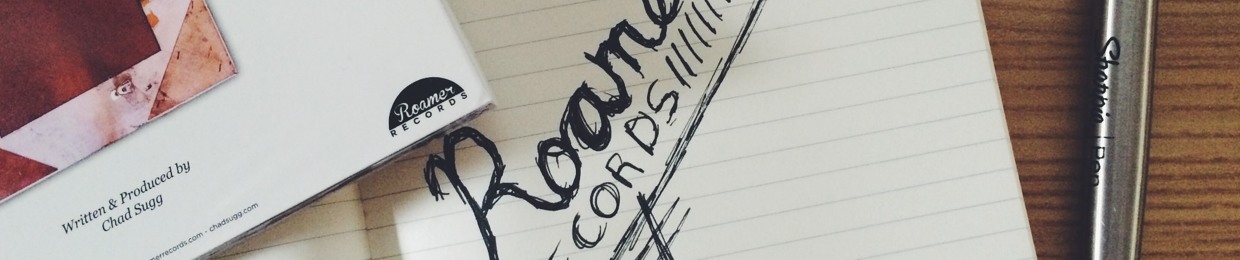 Roamer
RECORDS
Written & Produced by
Chad Sugg
merrecords.com - chadsugg.com
Roame
CORDS
Sharpie | Pen